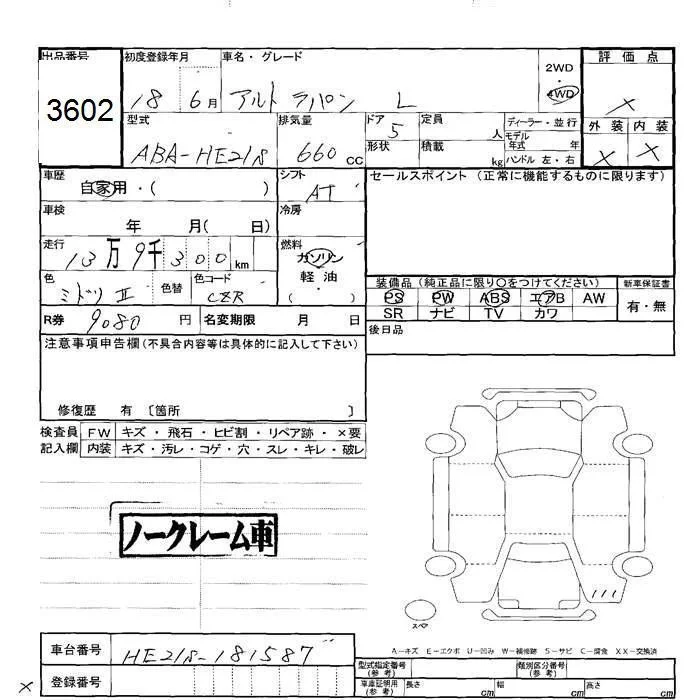 出品番号 初度登録年月 車名・グレード 2WD ・ 4WD 評価点
3602 18 6月 アルト ラパン L ×
型式 排気量 ドア 定員 ディーラー・並行 外装 内装
ABA-HE21S 660cc 5 人 モデル年式 年 × ×
形状 積載 kg ハンドル 左・右
車歴 シフト セールスポイント (正常に機能するものに限ります)
自家用・( ) AT
車検 冷房
年 月( 日)
走行 燃料
13万9千300km ガソリン
軽油
( )
色 色替 色コード 装備品 (純正品に限り○をつけてください) 新車保証書
ミドリII CZR PS PW ABS エアB AW 有・無
R券 9080円 名変期限 月 日 SR ナビ TV カワ
後日品
注意事項申告欄(不具合内容等は具体的に記入して下さい)
修復歴 有 〔箇所 〕
検査員 FW キズ・飛石・ヒビ割・リペア跡・×要
記入欄 内装 キズ・汚レ・コゲ・穴・スレ・キレ・破レ
ノークレーム車
スペア
A-キズ E-エクボ U-凹み W-補修跡 S-サビ C-腐食 XX-交換済
車台番号 HE21S-181587
登録番号
×
型式指定番号(参考) 類別区分番号(参考)
車庫証明用(参考) 長さ cm 幅 cm 高さ cm